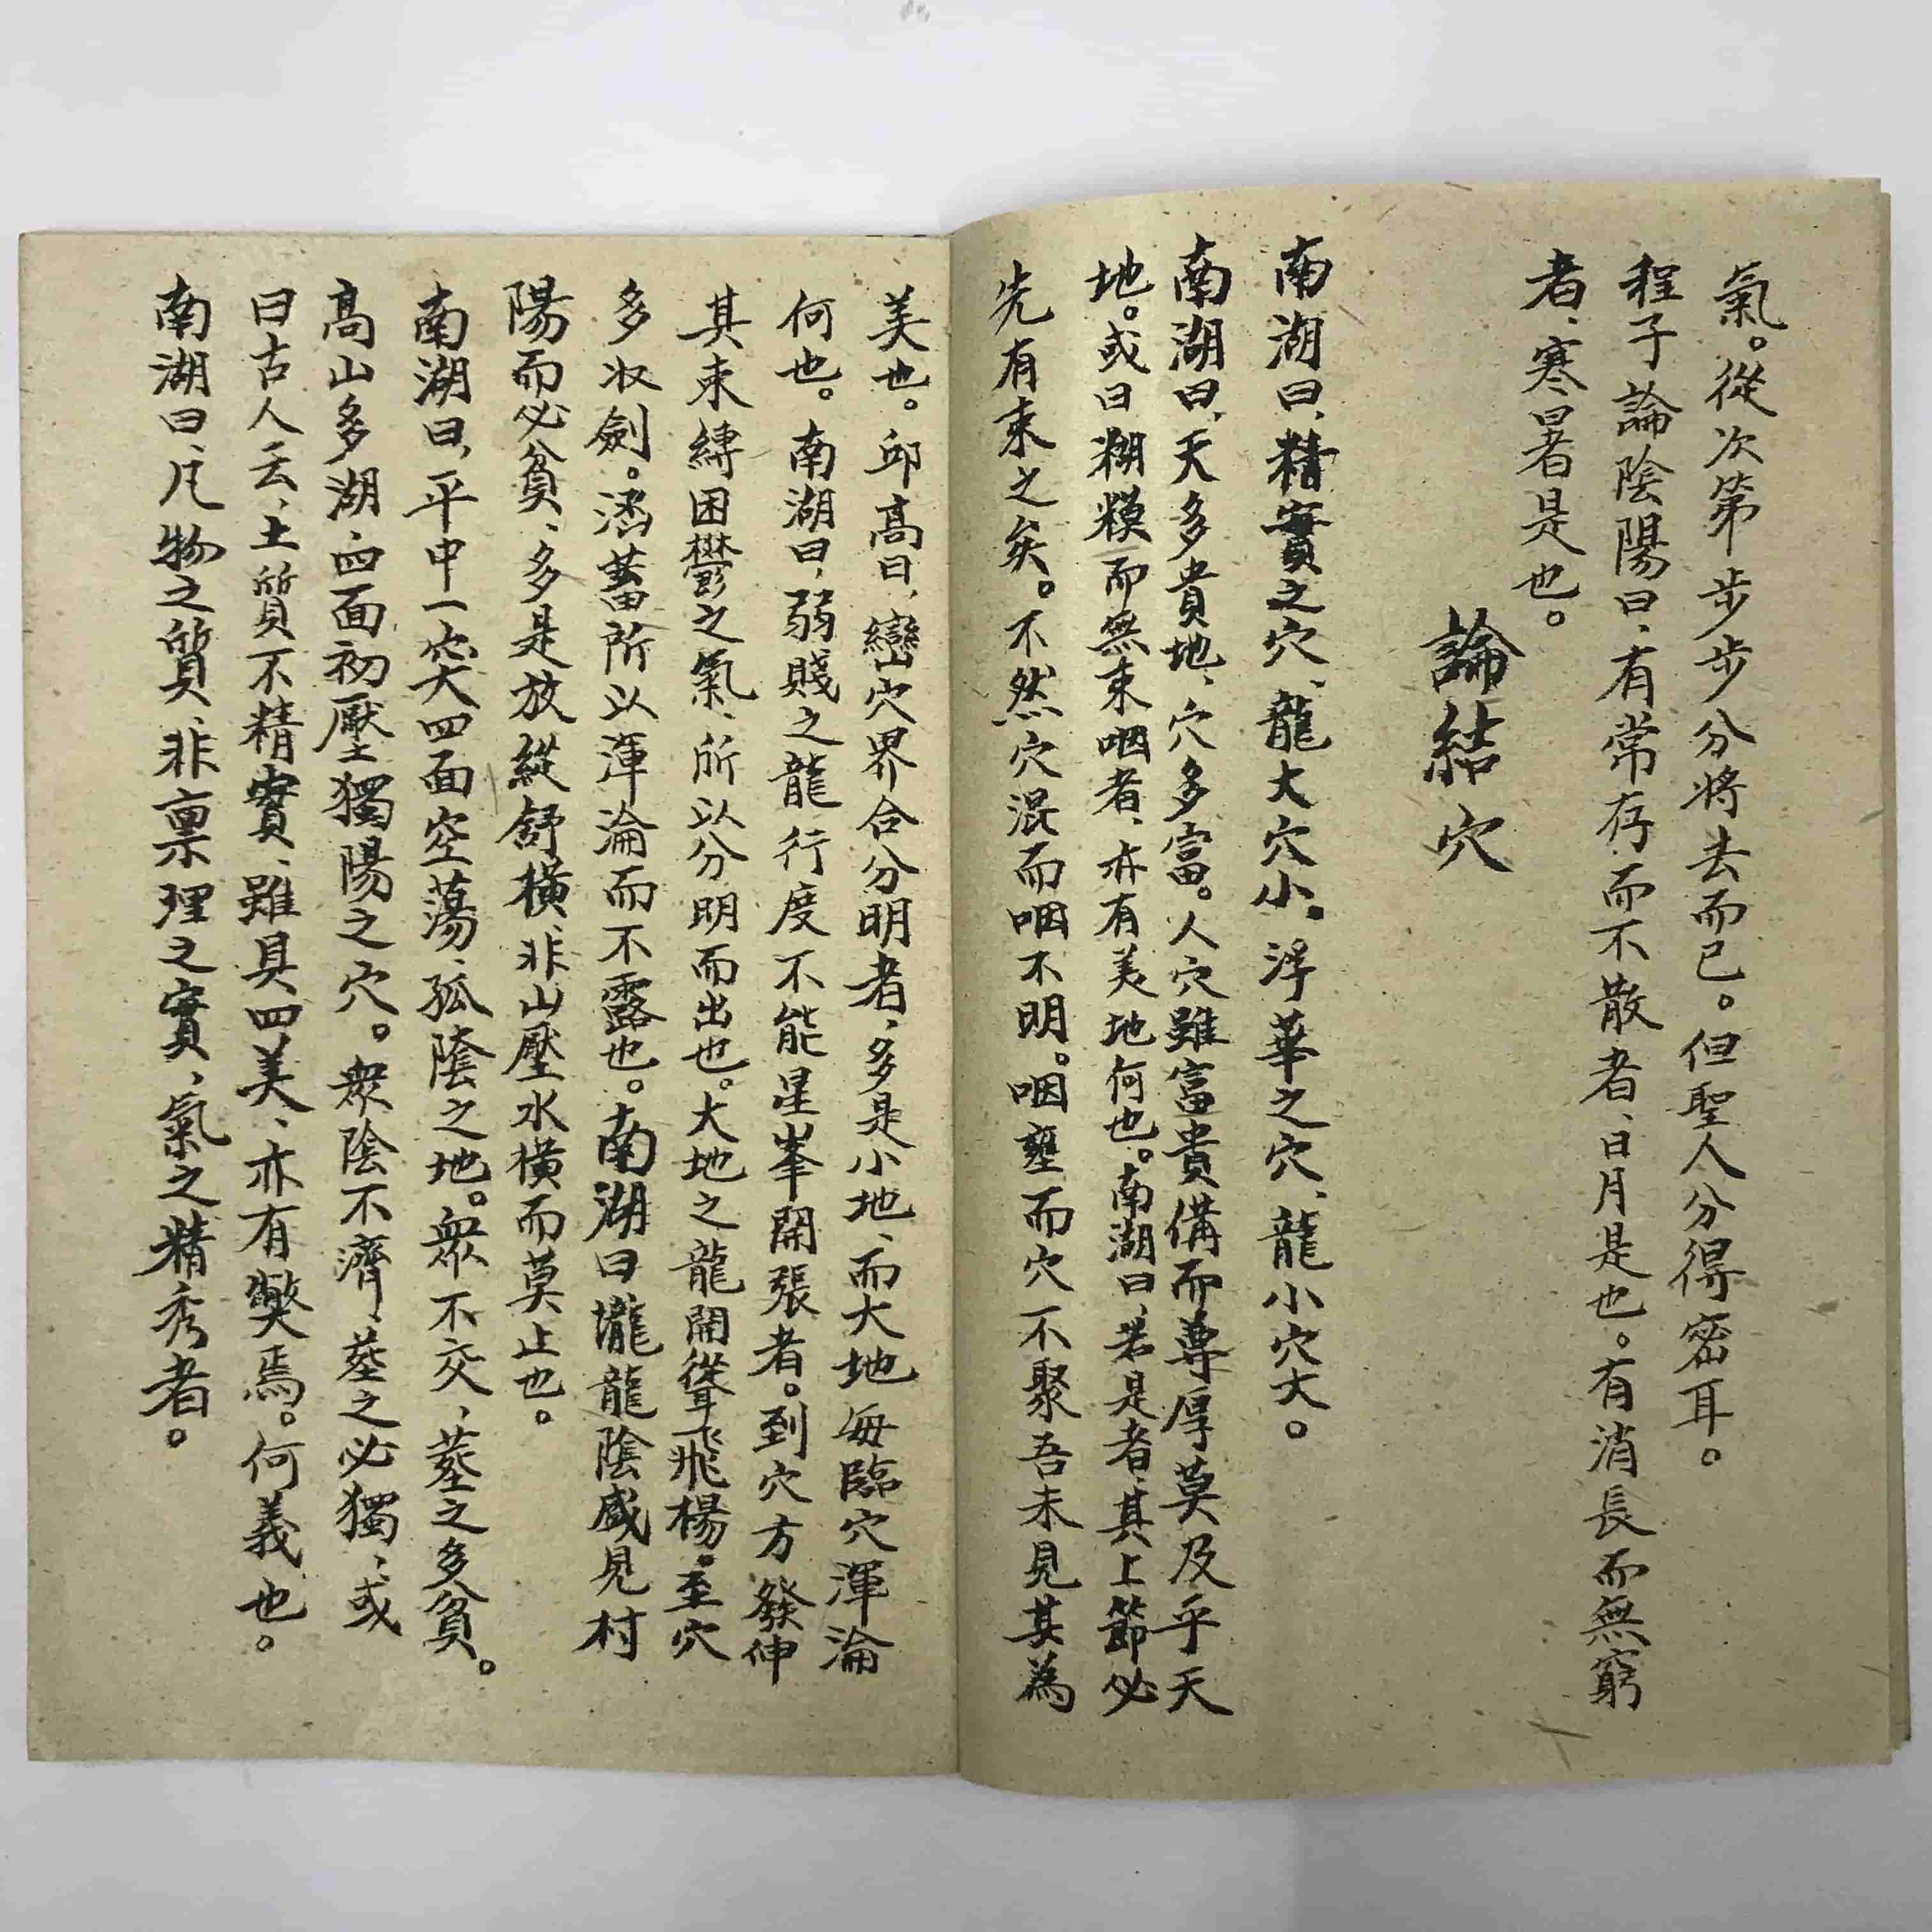 氣。從次第步步分將去而已。但聖人分得密耳。
程子論陰陽曰、有常存而不散者、日月是也。有消長而無窮
者、寒暑是也。
論結穴
南湖曰、精實之穴、龍大穴小。浮華之穴、龍小穴大。
南湖曰、天多貴地、穴多富。人穴雖富貴備而尊厚莫及乎天
地。或曰糊糢而無束咽者、亦有美地何也。南湖曰、若是者、其上節必
先有束之矣。不然穴混而咽不明。咽壅而穴不聚吾未見其為
美也。邱髙曰、巒穴界合分明者、多是小地、而大地每臨穴渾淪
何也。南湖曰、弱賤之龍行度不能星峯開張者。到穴方發伸
其束縛困鬱之氣、所以分明而出也。大地之龍開聳飛楊。至穴
多收劍。涵蓄所以渾淪而不露也。南湖曰壠龍陰盛見村
陽而必貧、多是放縱舒橫、非山壓水橫而莫止也。
南湖曰、平中一突四面空蕩、孤陰之地。衆不交、葬之多貧。
髙山多湖、四面初壓獨陽之穴。衆陰不濟、葬之必獨、或
曰古人云、土質不精實、雖具四美、亦有獘焉。何義也。
南湖曰、凡物之質、非禀理之實、氣之精秀者。